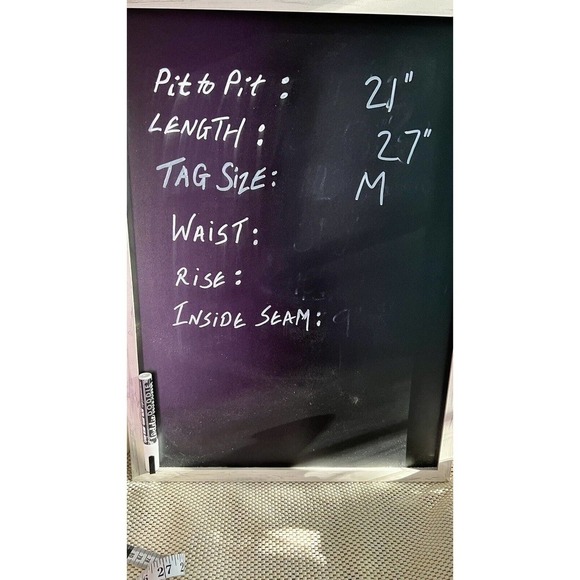 Pit to Pit: 21"
LENGTH: 27"
TAG SIZE: M
WAIST:
RISE:
INSIDE SEAM:
27